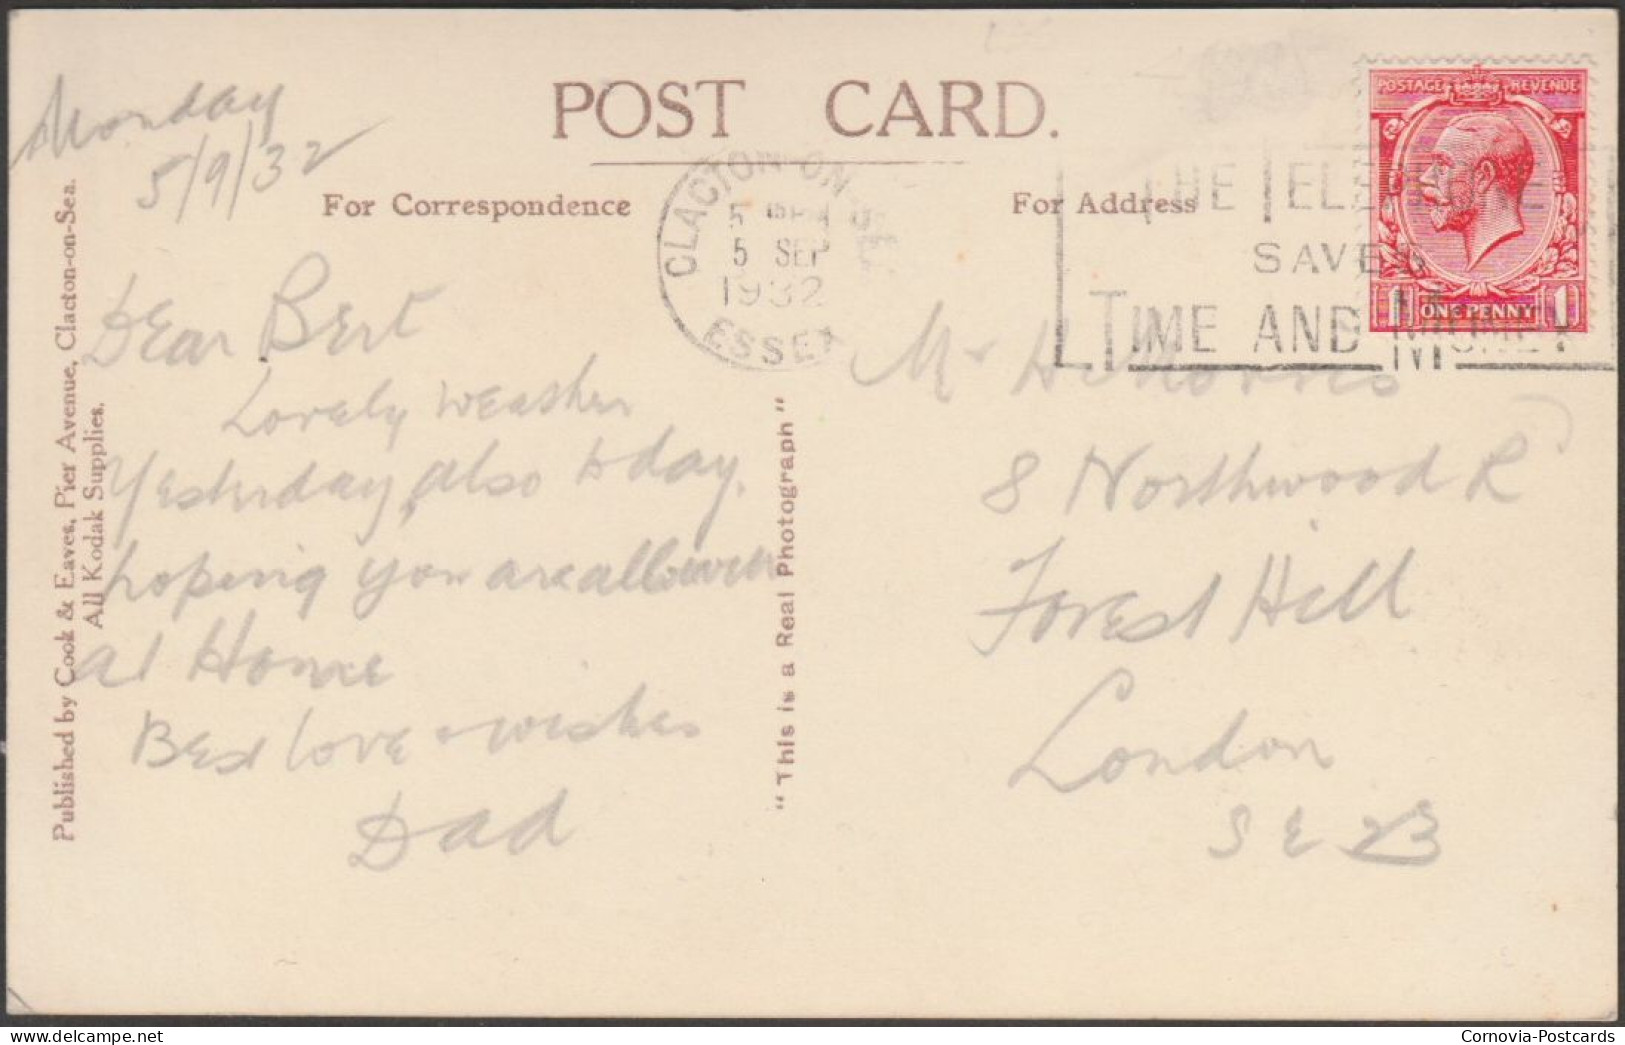 POST CARD.
Monday
5/9/32
For Correspondence
For Address
CLACTON-ON-SEA
5 SEP
1932
ESSEX
THE TELEPHONE
SAVES
TIME AND MONEY
POSTAGE REVENUE
1 ONE PENNY 1
Dear Bert
Lovely Weather
Yesterday, also today.
hoping you are all well
at Home
Best love & wishes
Dad
Mr H Morris
8 Northwood R
Forest Hill
London
S E 23
Published by Cook & Eaves, Pier Avenue, Clacton-on-Sea.
All Kodak Supplies.
"This is a Real Photograph"
Cornovia-Postcards